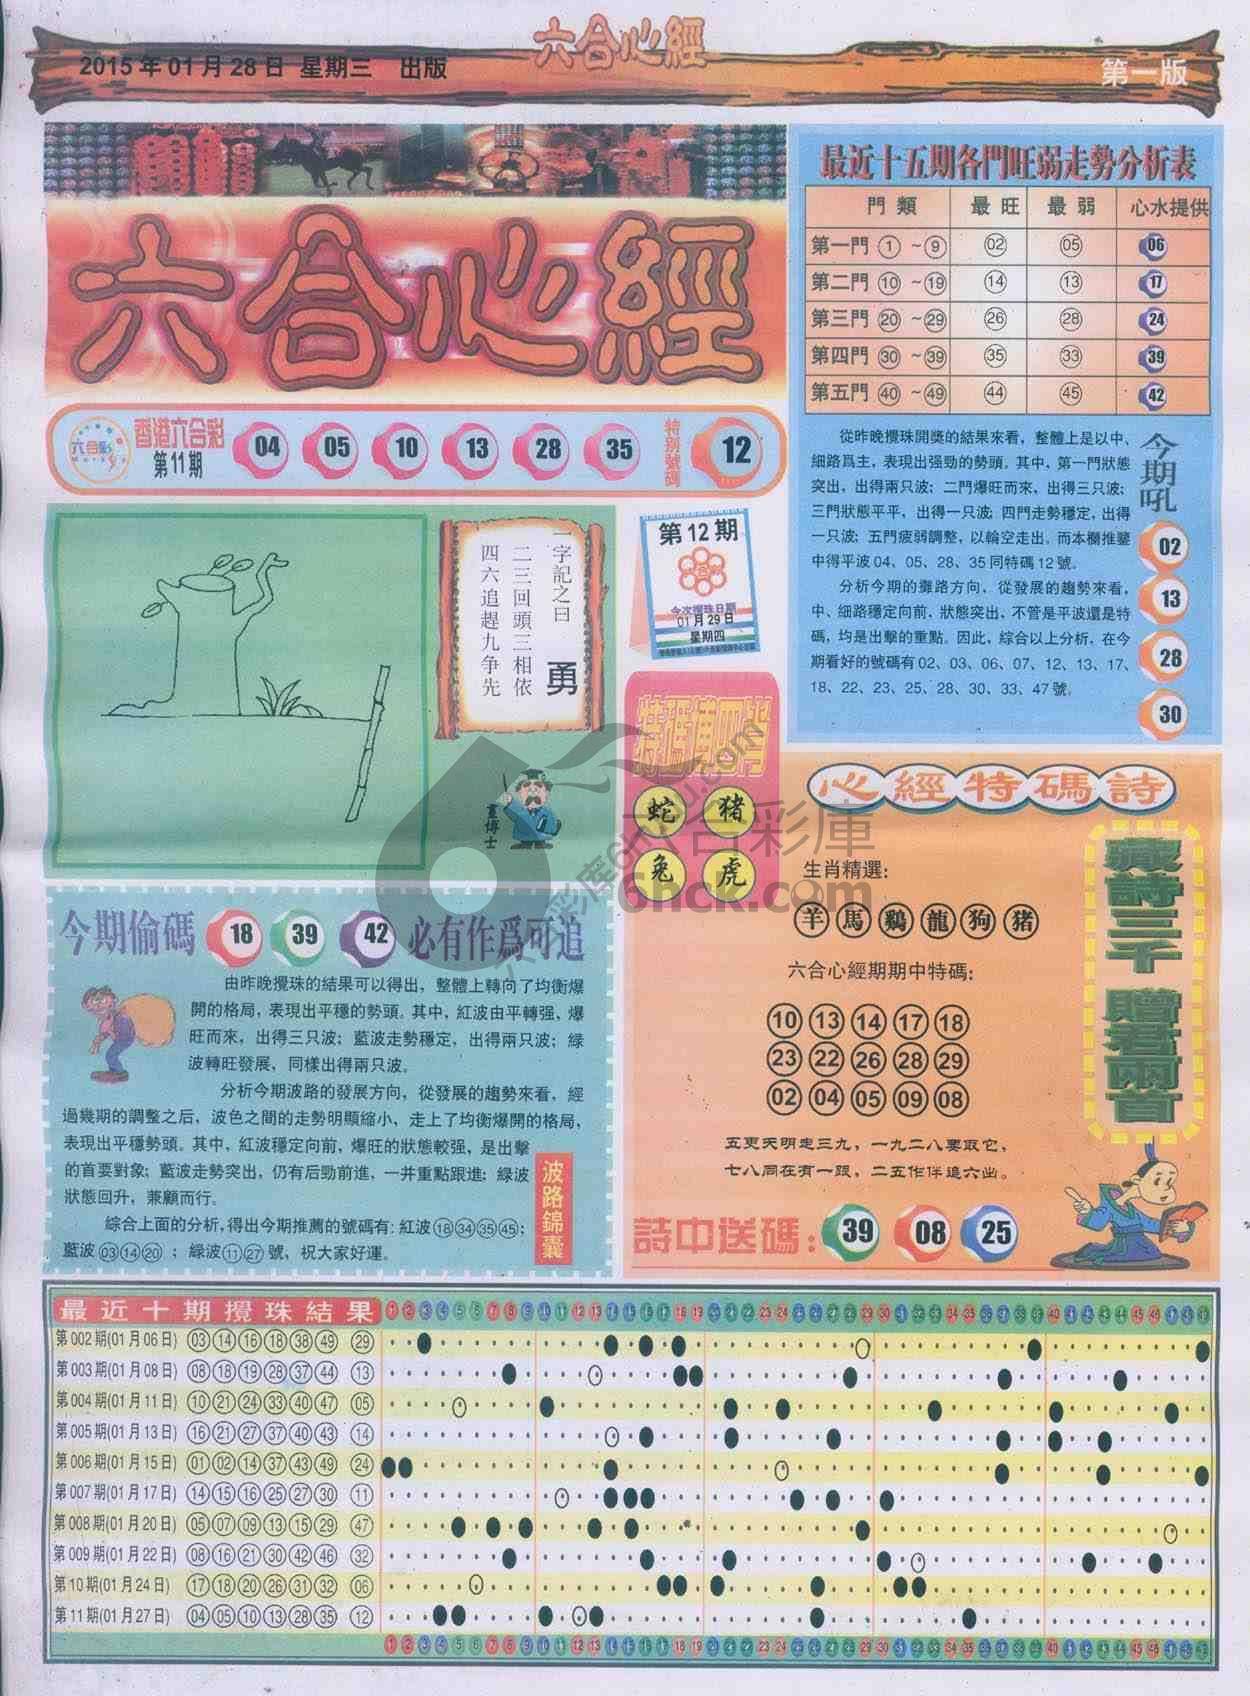 2015年01月28日 星期三 出版
六合心經
第一版
六合心經
六合彩
香港六合彩
第11期
04 05 10 13 28 35
特别號碼
12
最近十五期各門旺弱走勢分析表
門類 最旺 最弱 心水提供
第一門 1 ~ 9 02 05 06
第二門 10 ~ 19 14 13 17
第三門 20 ~ 29 26 28 24
第四門 30 ~ 39 35 33 39
第五門 40 ~ 49 44 45 42
從昨晚攪珠開獎的結果來看，整體上是以中、
細路爲主，表現出强勁的勢頭。其中，第一門狀態
突出，出得兩只波；二門爆旺而來，出得三只波；
三門狀態平平，出得一只波；四門走勢穩定，出得
一只波；五門疲弱調整，以輪空走出。而本欄推鑒
中得平波04、05、28、35同特碼12號。
分析今期的攤路方向，從發展的趨勢來看，
中、細路穩定向前，狀態突出，不管是平波還是特
碼，均是出擊的重點。因此，綜合以上分析，在今
期看好的號碼有02、03、06、07、12、13、17、
18、22、23、25、28、30、33、47號。
今期吼
02
13
28
30
一字記之曰 勇
二三回頭三相依
四六追趕九争先
畫博士
第12期
今次攪珠日期
01月29日
星期四
特碼博四肖
蛇 豬
兔 虎
心經特碼詩
生肖精選：
羊 馬 鷄 龍 狗 猪
六合心經期期中特碼：
10 13 14 17 18
23 22 26 28 29
02 04 05 09 08
五更天明走三九，一九二八要取它，
七八同在有一跟，二五作伴追六出。
詩中送碼： 39 08 25
藏詩三千 贈君兩首
今期偷碼 18 39 42 必有作爲可追
由昨晚攪珠的結果可以得出，整體上轉向了均衡爆
開的格局，表現出平穩的勢頭。其中，紅波由平轉强，爆
旺而來，出得三只波；藍波走勢穩定，出得兩只波；綠
波轉旺發展，同樣出得兩只波。
分析今期波路的發展方向，從發展的趨勢來看，經
過幾期的調整之后，波色之間的走勢明顯縮小，走上了均衡爆開的格局，
表現出平穩勢頭。其中，紅波穩定向前，爆旺的狀態較强，是出擊
的首要對象；藍波走勢突出，仍有后勁前進，一并重點跟進；綠波
狀態回升，兼顧而行。
綜合上面的分析，得出今期推薦的號碼有：紅波18 34 35 45；
藍波03 14 20；綠波11 27號，祝大家好運。
波路錦囊
六合彩庫
6hck.com
最近十期攪珠結果
第002期(01月06日) 03 14 16 18 38 49 29
第003期(01月08日) 08 18 19 28 37 44 13
第004期(01月11日) 10 21 24 33 40 47 05
第005期(01月13日) 16 21 27 37 40 43 14
第006期(01月15日) 01 02 14 37 43 49 24
第007期(01月17日) 14 15 16 25 27 30 11
第008期(01月20日) 05 07 09 13 15 29 47
第009期(01月22日) 08 16 21 30 42 46 32
第10期(01月24日) 17 18 20 26 31 32 06
第11期(01月27日) 04 05 10 13 28 35 12